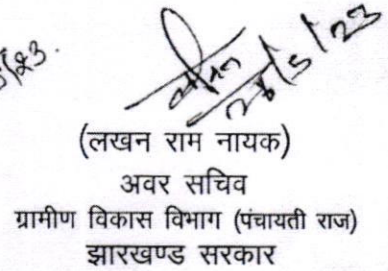 26/5/23
(लखन राम नायक)
अवर सचिव
ग्रामीण विकास विभाग (पंचायती राज)
झारखण्ड सरकार